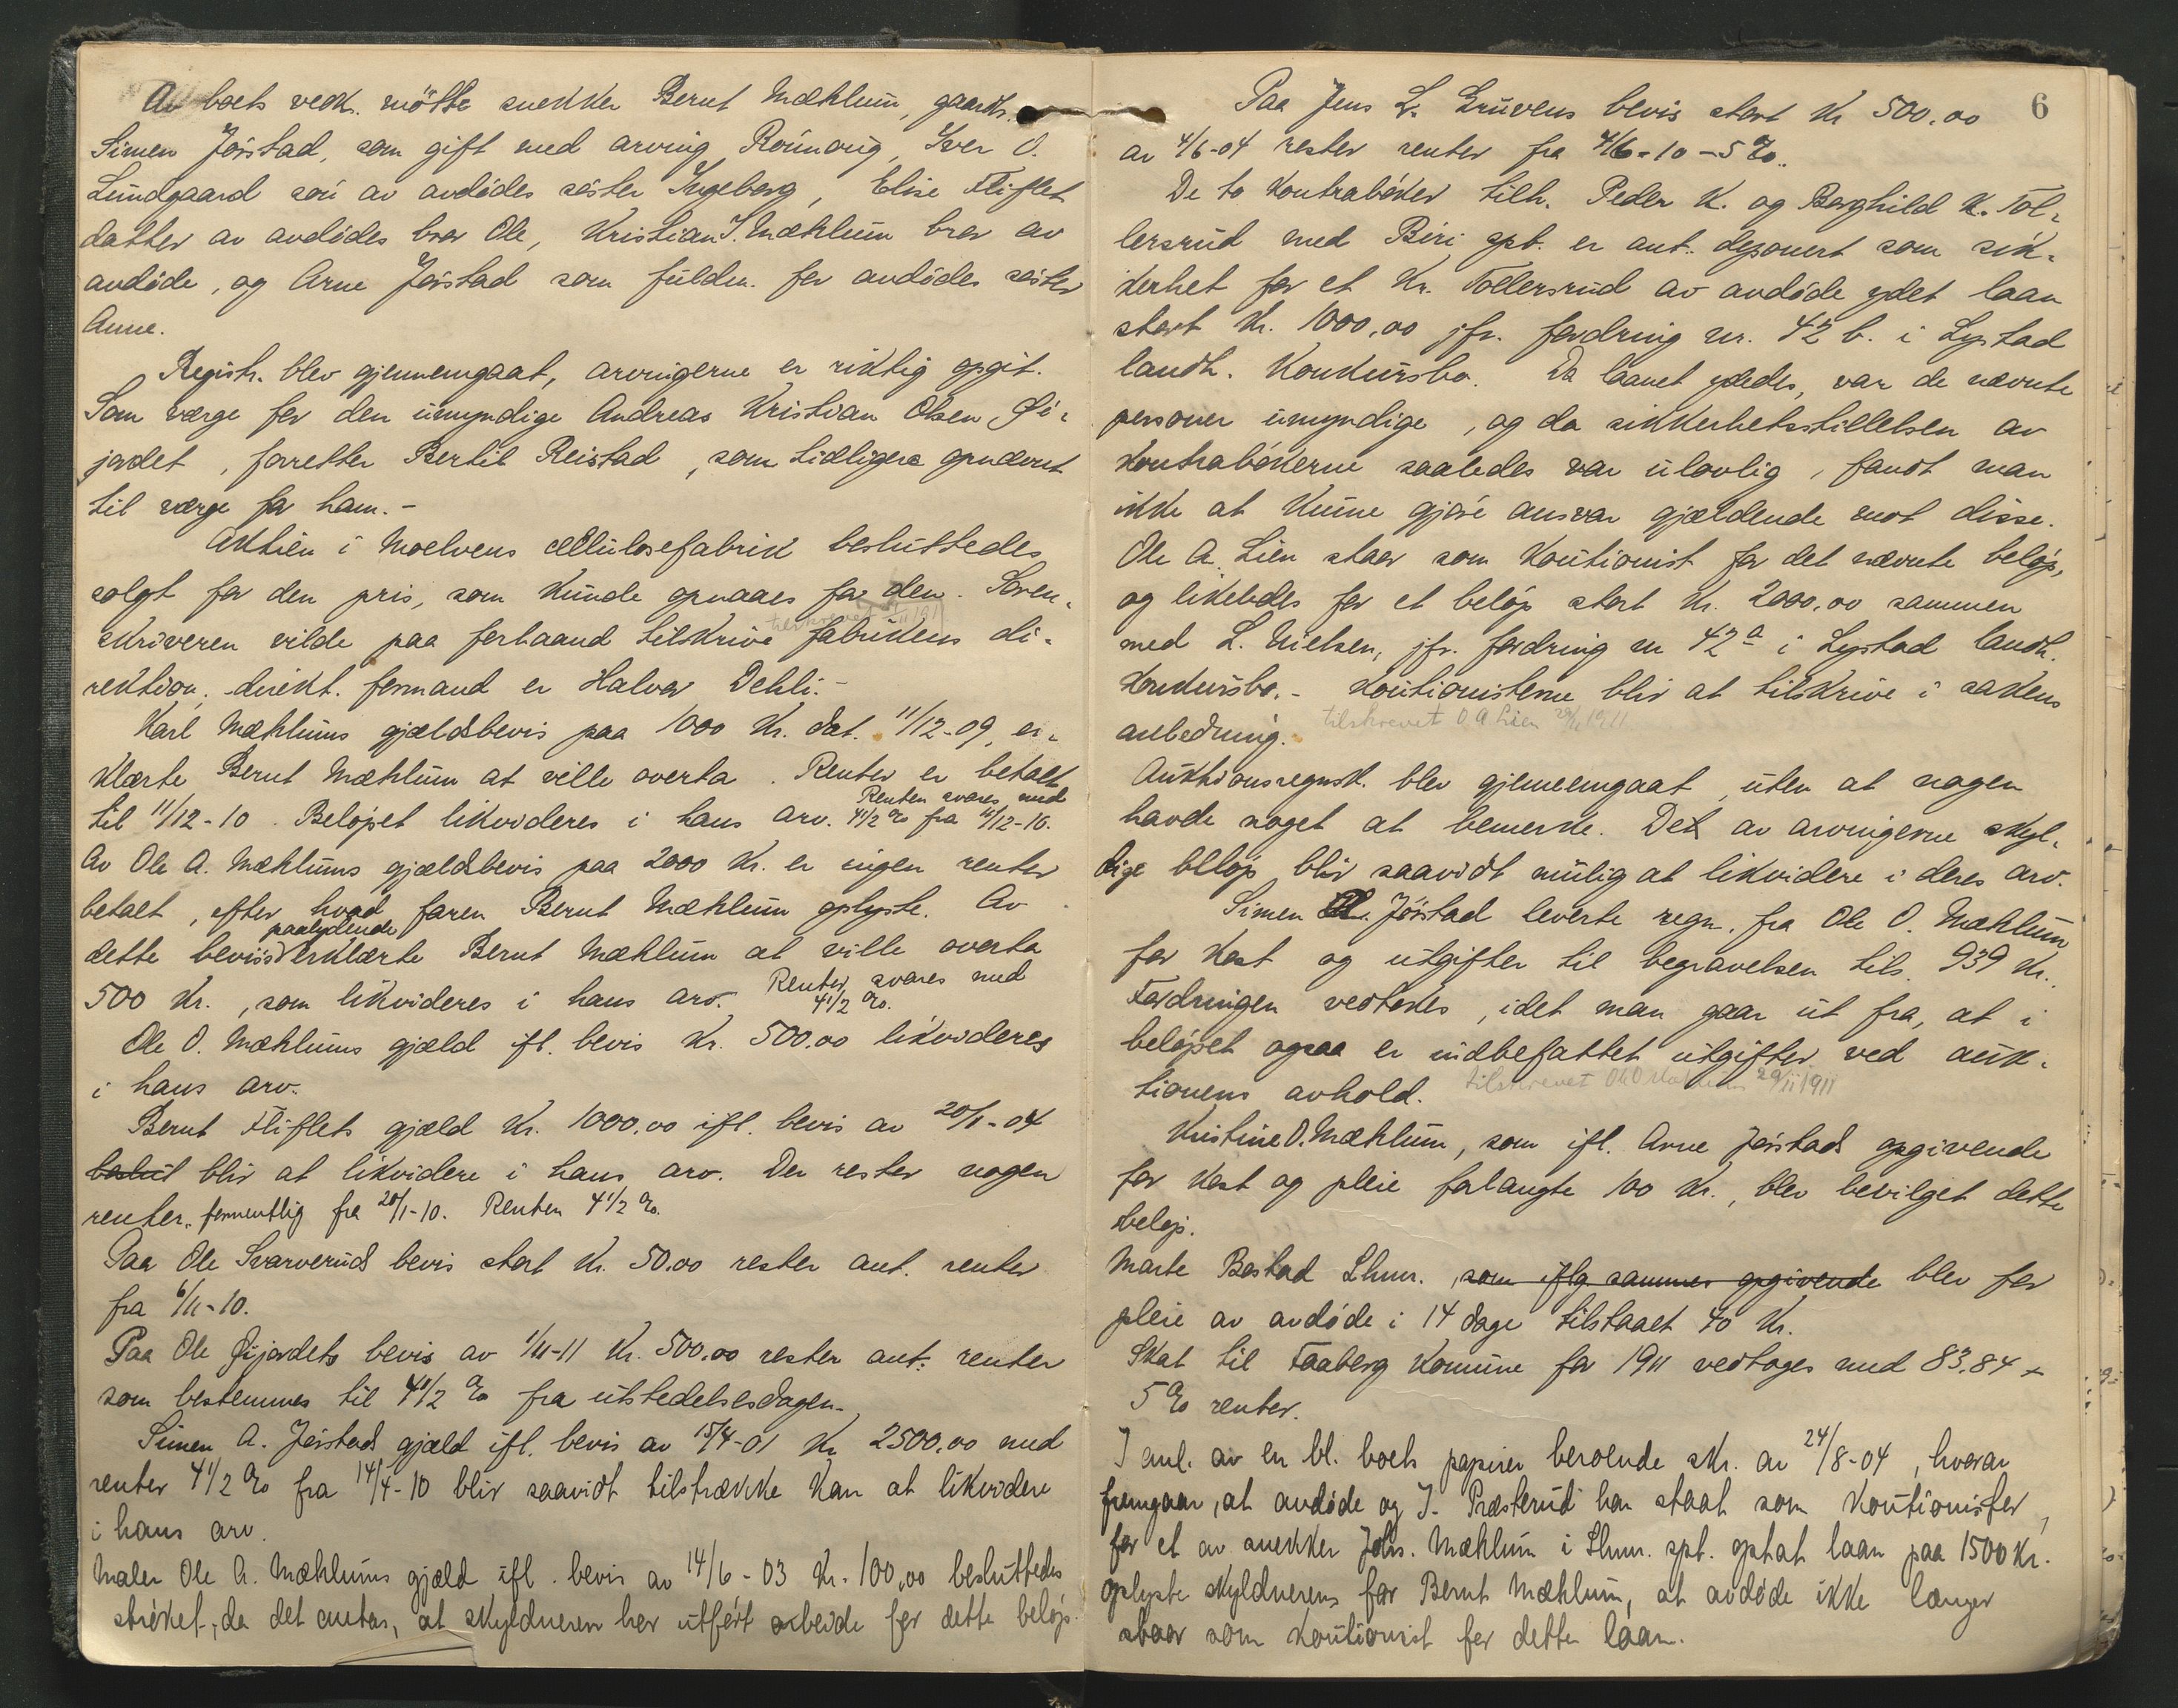 Av boets vedk. mötte snekker Bernt Mæhlum, gaardbr.
Simen Jörstad, som gift med arving Rönnaug, Iver O.
Lundgaard sön av avdödes söster Ingeborg, Elise Fliflet
datter av avdödes bror Ole, Kristian S. Mæhlum bror av
avdöde, og Arne Jörstad som fuldm. for avdödes söster
Anne.
Registr. blev gjennemgaat, arvingerne er riktig opgit.
Som verge for den umyndige Andreas Kristian Olsen Öi-
jordet, forretter Bertil Reistad, som tidligere opnævnt
til verge for ham.-
Aktien i Moelvens cellulosefabrik besluttedes
solgt for den pris, som kunde opnaaes for den. Soren-
tilskrevet 29/11 1911
skriveren vilde paa forhaand tilskrive fabrikens di-
rektion, direkt. formand er Halvor Dehli.-
Karl Mæhlums gjældsbevis paa 1000 Kr. dat. 11/12-09, er-
klærte Bernt Mæhlum at ville overta. Renter er betalt
til 11/12-10. Belöpet likvideres i hans arv. Renten svares med 4 1/2 % fra 11/12-10.
Av Ole A. Mæhlums gjældsbevis paa 2000 Kr. er ingen renter
betalt, efter hvad faren Bernt Mæhlum oplyste. Av
dette bevis's paalydende erklærte Bernt Mæhlum at ville overta
500 Kr., som likvideres i hans arv. Renter svares med 4 1/2 %.
Ole O. Mæhlums gjæld ifl. bevis Kr. 500.00 likvideres
i hans arv.
Bernt Fliflets gjæld Kr. 1000.00 ifl. bevis av 20/1-04
beslut blir at likvidere i hans arv. Der rester nogen
renter, formentlig fra 20/1-10. Renten 4 1/2 %.
Paa Ole Svarveruds bevis stort Kr. 50.00 rester ant. renter
fra 6/11-10.
Paa Ole Öijordets bevis av 1/11-11 Kr. 500.00 rester ant. renter
som bestemmes til 4 1/2 % fra utstedelsesdagen.
Simen A. Jörstads gjæld ifl. bevis av 15/4-01 Kr 2500.00 med
renter 4 1/2 % fra 14/4-10 blir saavidt tilstrække kan at likvidere
i hans arv.
Maler Ole A. Mæhlums gjæld ifl. bevis av 14/6-03 Kr. 100,00 besluttedes
ströket, da det antas, at skyldneren har utfört arbeide for dette belöp.
6
Paa Jens L. Gruvens bevis stort Kr 500.00
av 4/6-04 rester renter fra 4/6-10 - 5 %.
De to kontraböker tilh. Peder K. og Borghild K. Tol-
lersrud med Biri spb. er ant. deponert som sik-
kerhet for et Kr. Tollersrud av avdöde ydet laan
stort Kr. 1000.00 jfr. fordring nr. 42 b. i Lystad
landh. konkursbo. Da laanet ydedes, var de nævnte
personer umyndige, og da sikkerhetsstillelsen av
kontrabökerne saaledes var ulovlig, fandt man
ikke at kunne gjöre ansvar gjældende mot disse.
Ole A. Lien staar som kautionist for det nævnte belöp,
og likeledes for et belöp stort Kr. 2000.00 sammen
med L. Nielsen, jfr. fordring nr 42 a i Lystad landh.
konkursbo.- Kautionisterne blir at tilskrive i sakens
anledning. tilskrevet O A Lien 29/11 1911
Auktionsregnsk. blev gjennemgaat, uten at nogen
havde noget at bemerke. Det av arvingerne skyl-
dige belöp blir saavidt mulig at likvidere i deres arv.
Simen A. Jörstad leverte regn. fra Ole O. Mæhlum
for kost og utgifter til begravelsen tils. 939 Kr.
Fordringen vedtokes, idet man gaar ut fra, at i
belöpet ogsaa er indbefattet utgifter ved auk-
tionens avhold. tilskrevet Ole O Mæhlum 29/11 1911
Kristine O. Mæhlum, som ifl. Arne Jörstads opgivende
for kost og pleie forlangte 100 Kr., blev bevilget dette
belöp.
Marte Bostad Lhmr., som iflg sammes opgivende blev for
pleie av avdöde i 14 dage tilstaaet 40 Kr.
Skat til Faaberg Komune for 1911 vedtoges med 83.84 +
5 % renter.
I anl. av en bl. boets papirer beroende skr. av 24/8-04, hvorav
fremgaar, at avdöde og J. Præsterud har staat som kautionister
for et av snekker Johs. Mæhlum i Lhmr. spb. optat laan paa 1500 Kr.
oplyste skyldnerens far Bernt Mæhlum, at avdöde ikke længer
staar som kautionist for dette laan.